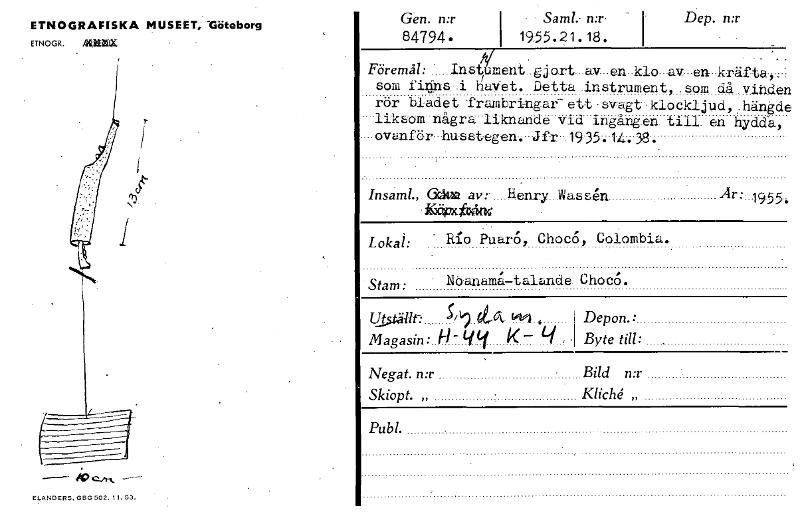 ETNOGRAFISKA MUSEET, Göteborg
ETNOGR.
13 cm
10 cm
ELANDERS, GBG 502. 11. 53.
Gen. n:r Saml. n:r Dep. n:r
84794. 1955.21.18.
Föremål: Instrument gjort av en klo av en kräfta,
som finns i havet. Detta instrument, som då vinden
rör bladet frambringar ett svagt klockljud, hängde
liksom några liknande vid ingången till en hydda,
ovanför husstegen. Jfr 1935.14.38.
Insaml., Gåva av: Henry Wassén År: 1955.
Köpt från:
Lokal: Río Puaró, Chocó, Colombia.
Stam: Noanamá-talande Chocó.
Utställt: Sydam. Depon.:
Magasin: H-44 K-4 Byte till:
Negat. n:r Bild n:r
Skiopt. „ Kliché „
Publ.